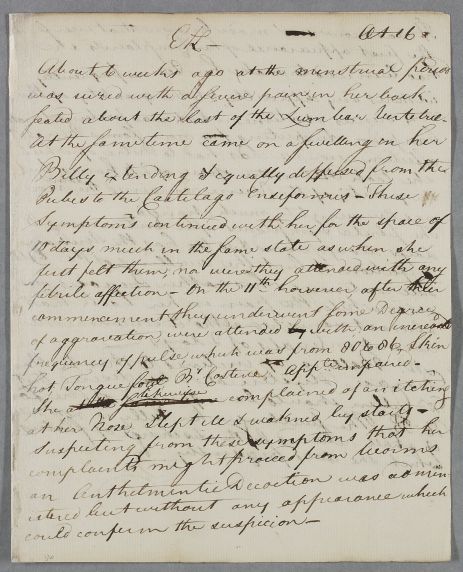 Oct 16
About 6 weeks ago at the menstrual period
was seized with a severe pain in her back
seated about the last of the Lumbar Vertebræ
At the same time came on a swelling in her
Belly extending & equally diffused from the
Pubes to the Cartilago Ensiformis - These
Symptoms continued with her for the space of
10 days much in the same state as when she
first felt them, nor were they attended with any
febrile affection - On the 11th however after their
commencement they underwent some Degree
of aggravation were attended with an increased
frequency of pulse which was from 80 to 86, Skin
hot Tongue foul By Costive App impaired -
She complained of an itching
at her Nose Slept ill & waked by starts -
Suspecting from these symptoms that her
complaints might proceed from Worms
an Anthelmintic Decoction was admin
istered but without any appearance which
could confirm the suspicion -